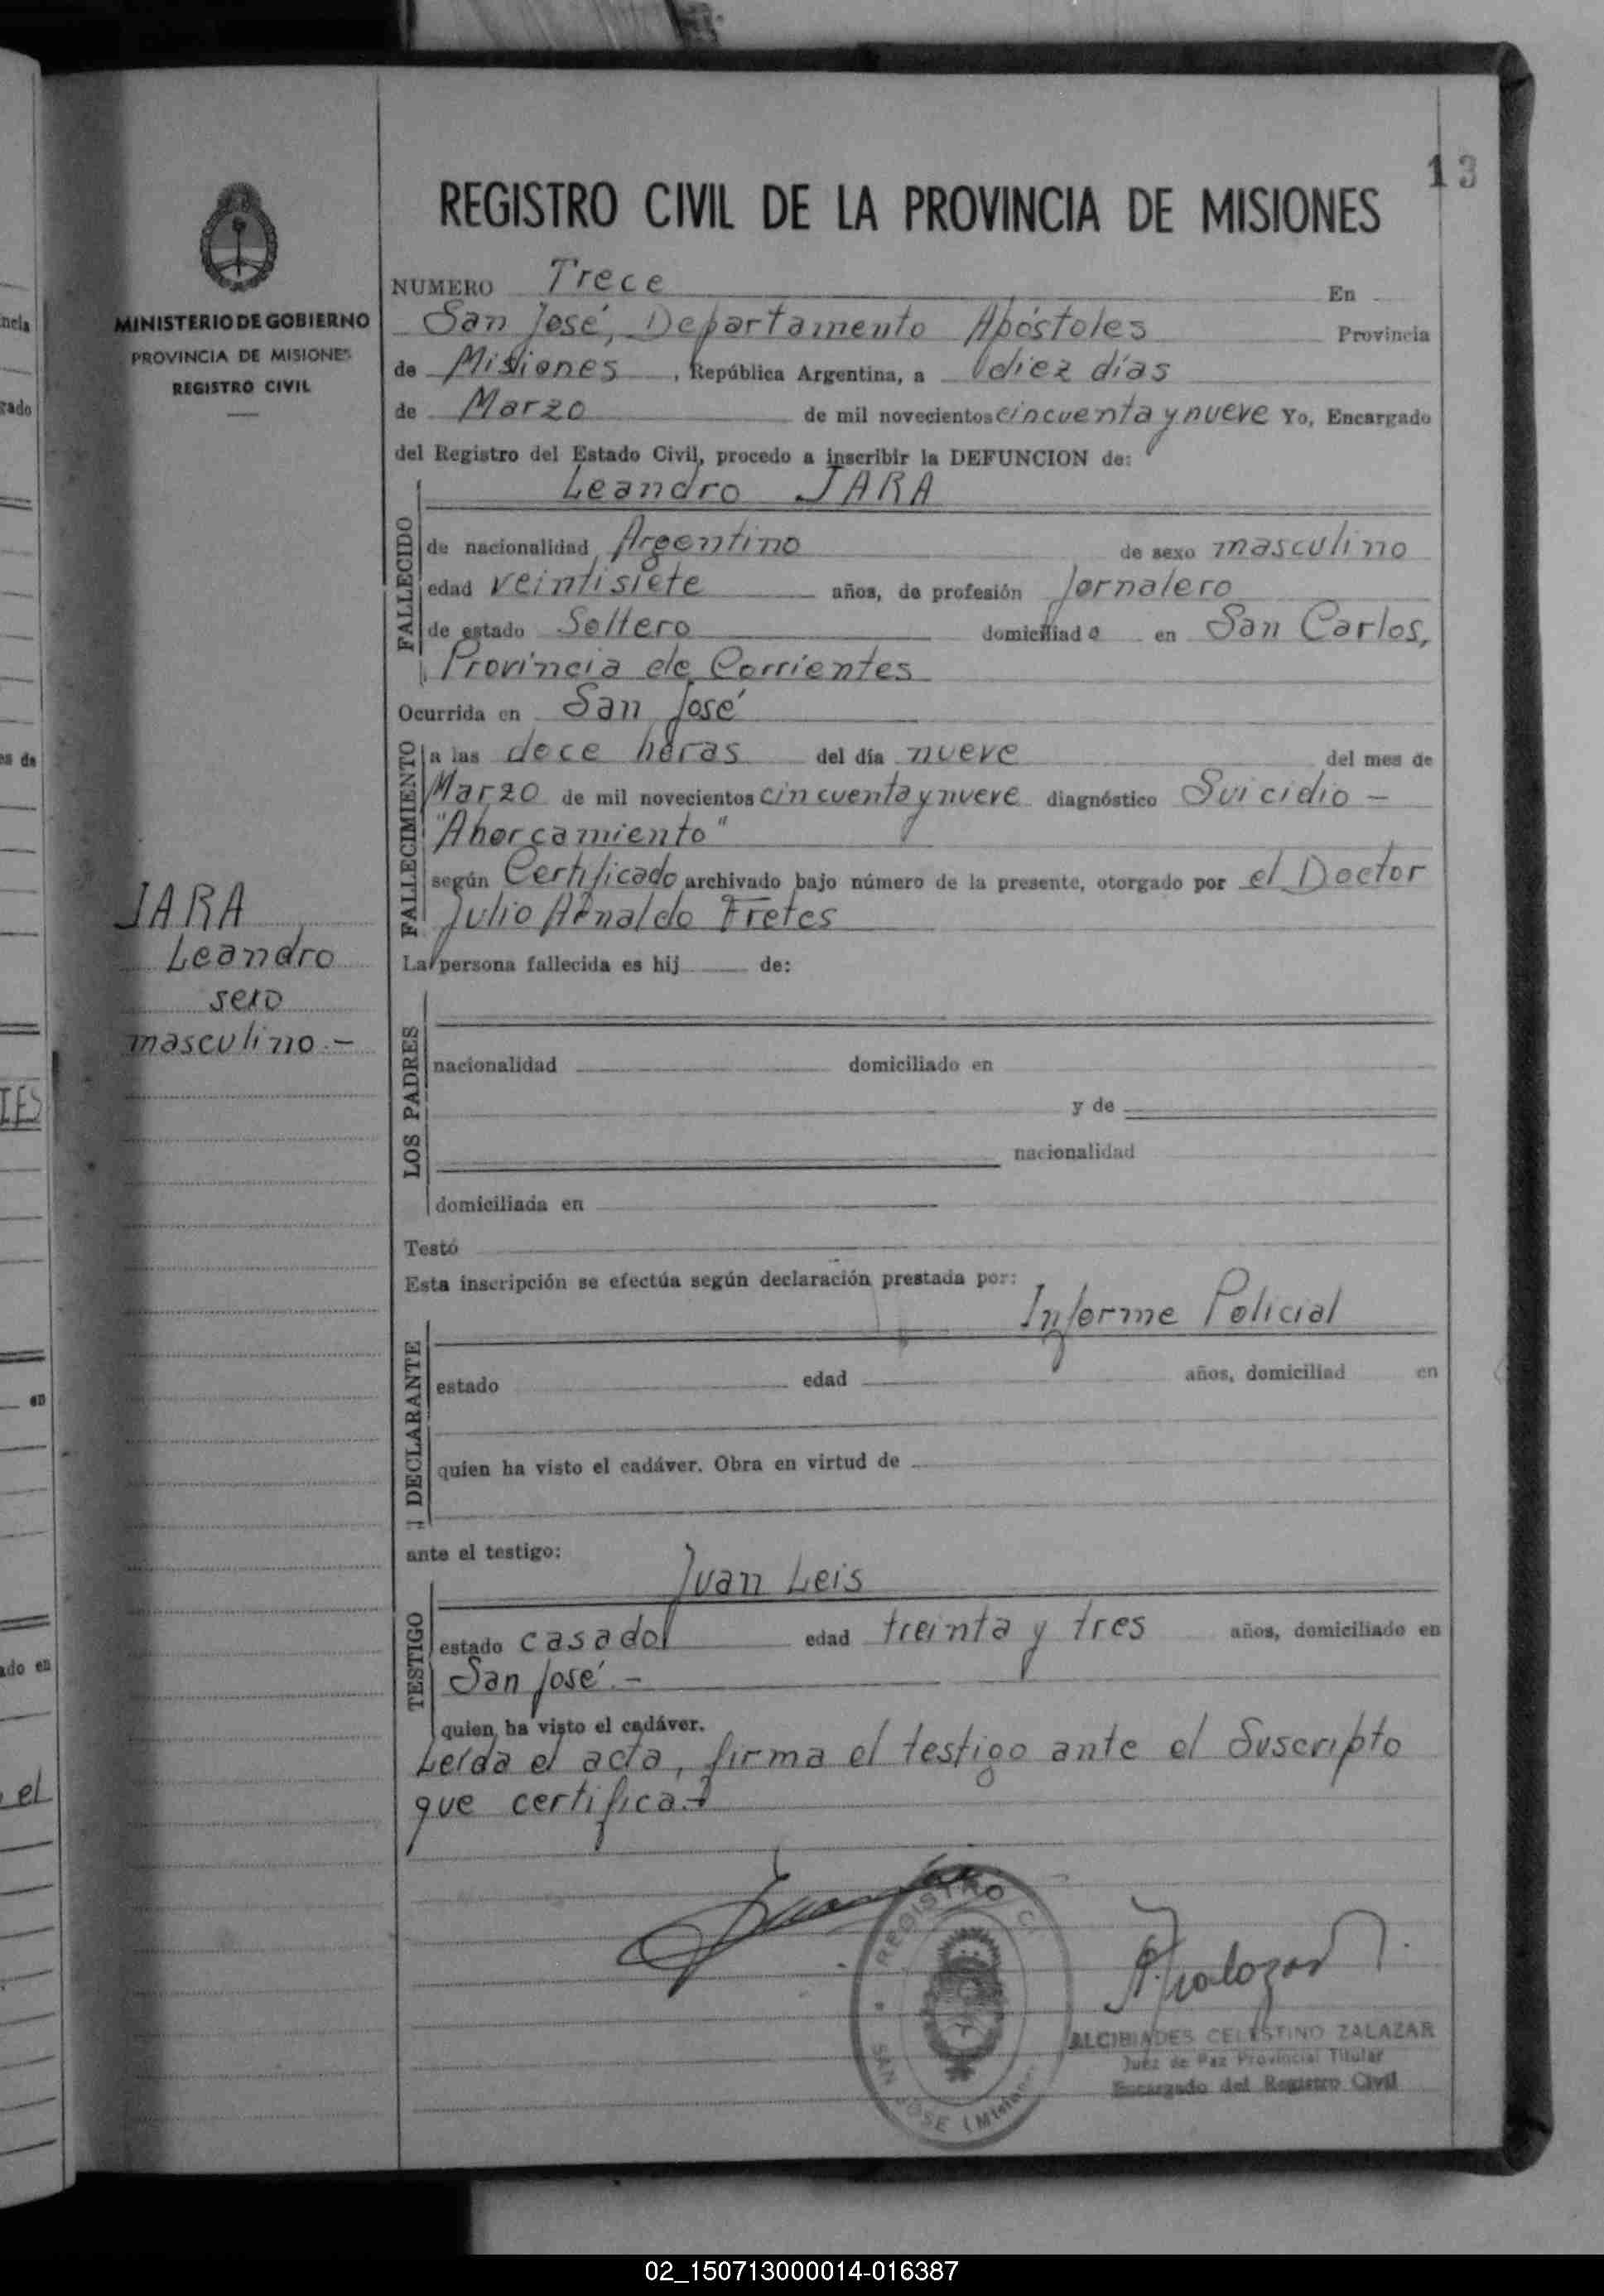 13
REGISTRO CIVIL DE LA PROVINCIA DE MISIONES
MINISTERIO DE GOBIERNO
PROVINCIA DE MISIONES
REGISTRO CIVIL
NUMERO Trece En
San José, Departamento Apóstoles Provincia
de Misiones, República Argentina, a diez días
de Marzo de mil novecientos cincuenta y nueve Yo, Encargado
del Registro del Estado Civil, procedo a inscribir la DEFUNCION de:
Leandro JARA
FALLECIDO
de nacionalidad Argentino de sexo masculino
edad veintisiete años, de profesión Jornalero
de estado Soltero domiciliado en San Carlos,
Provincia de Corrientes
Ocurrida en San José
FALLECIMIENTO
a las doce horas del día nueve del mes de
Marzo de mil novecientos cincuenta y nueve diagnóstico Suicidio -
"Ahorcamiento"
según Certificado archivado bajo número de la presente, otorgado por el Doctor
Julio Arnaldo Fretes
JARA
Leandro
sexo
masculino.-
La persona fallecida es hij de:
LOS PADRES
nacionalidad domiciliado en
y de
nacionalidad
domiciliada en
Testó
Esta inscripción se efectúa según declaración prestada por:
Informe Policial
DECLARANTE
estado edad años, domiciliad en
quien ha visto el cadáver. Obra en virtud de
ante el testigo:
Juan Leis
TESTIGO
estado casado edad treinta y tres años, domiciliado en
San José.-
quien ha visto el cadáver.
Leída el acta, firma el testigo ante el Suscripto
que certifica.-
REGISTRO C
SAN JOSE (Misiones
ALCIBIADES CELESTINO ZALAZAR
Juez de Paz Provincial Titular
Encargado del Registro Civil
ncia
rado
es de
IES
en
ado en
el
02_150713000014-016387